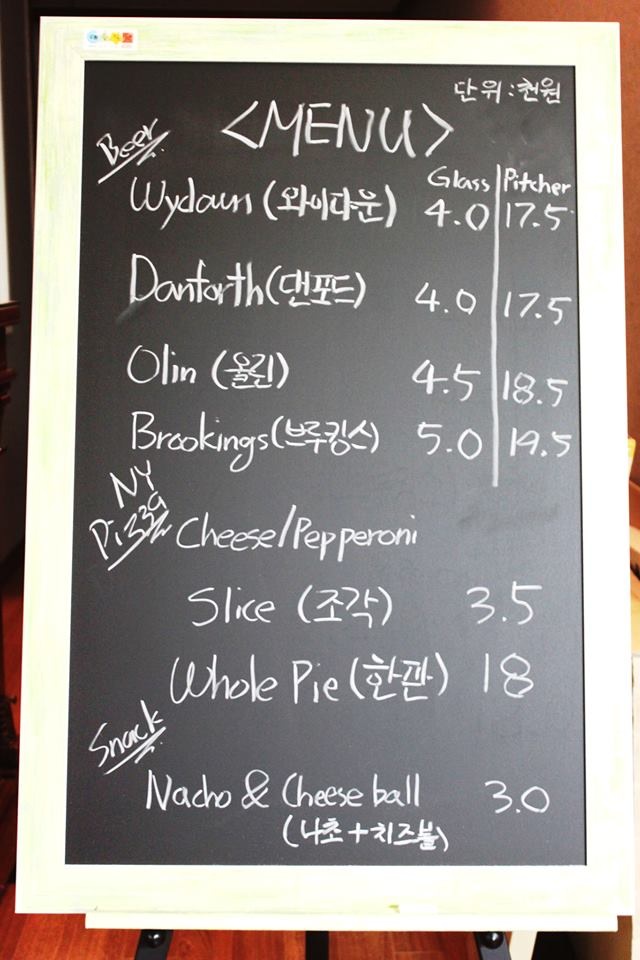 단위:천원
<MENU>
Beer
Glass Pitcher
Wydaun (와이다운) 4.0 17.5
Danforth (댄포드) 4.0 17.5
Olin (올린) 4.5 18.5
Brookings (브루킹스) 5.0 19.5
NY
Pizza
Cheese/Pepperoni
Slice (조각) 3.5
Whole Pie (한판) 18
Snack
Nacho & Cheese ball 3.0
(나초+치즈볼)